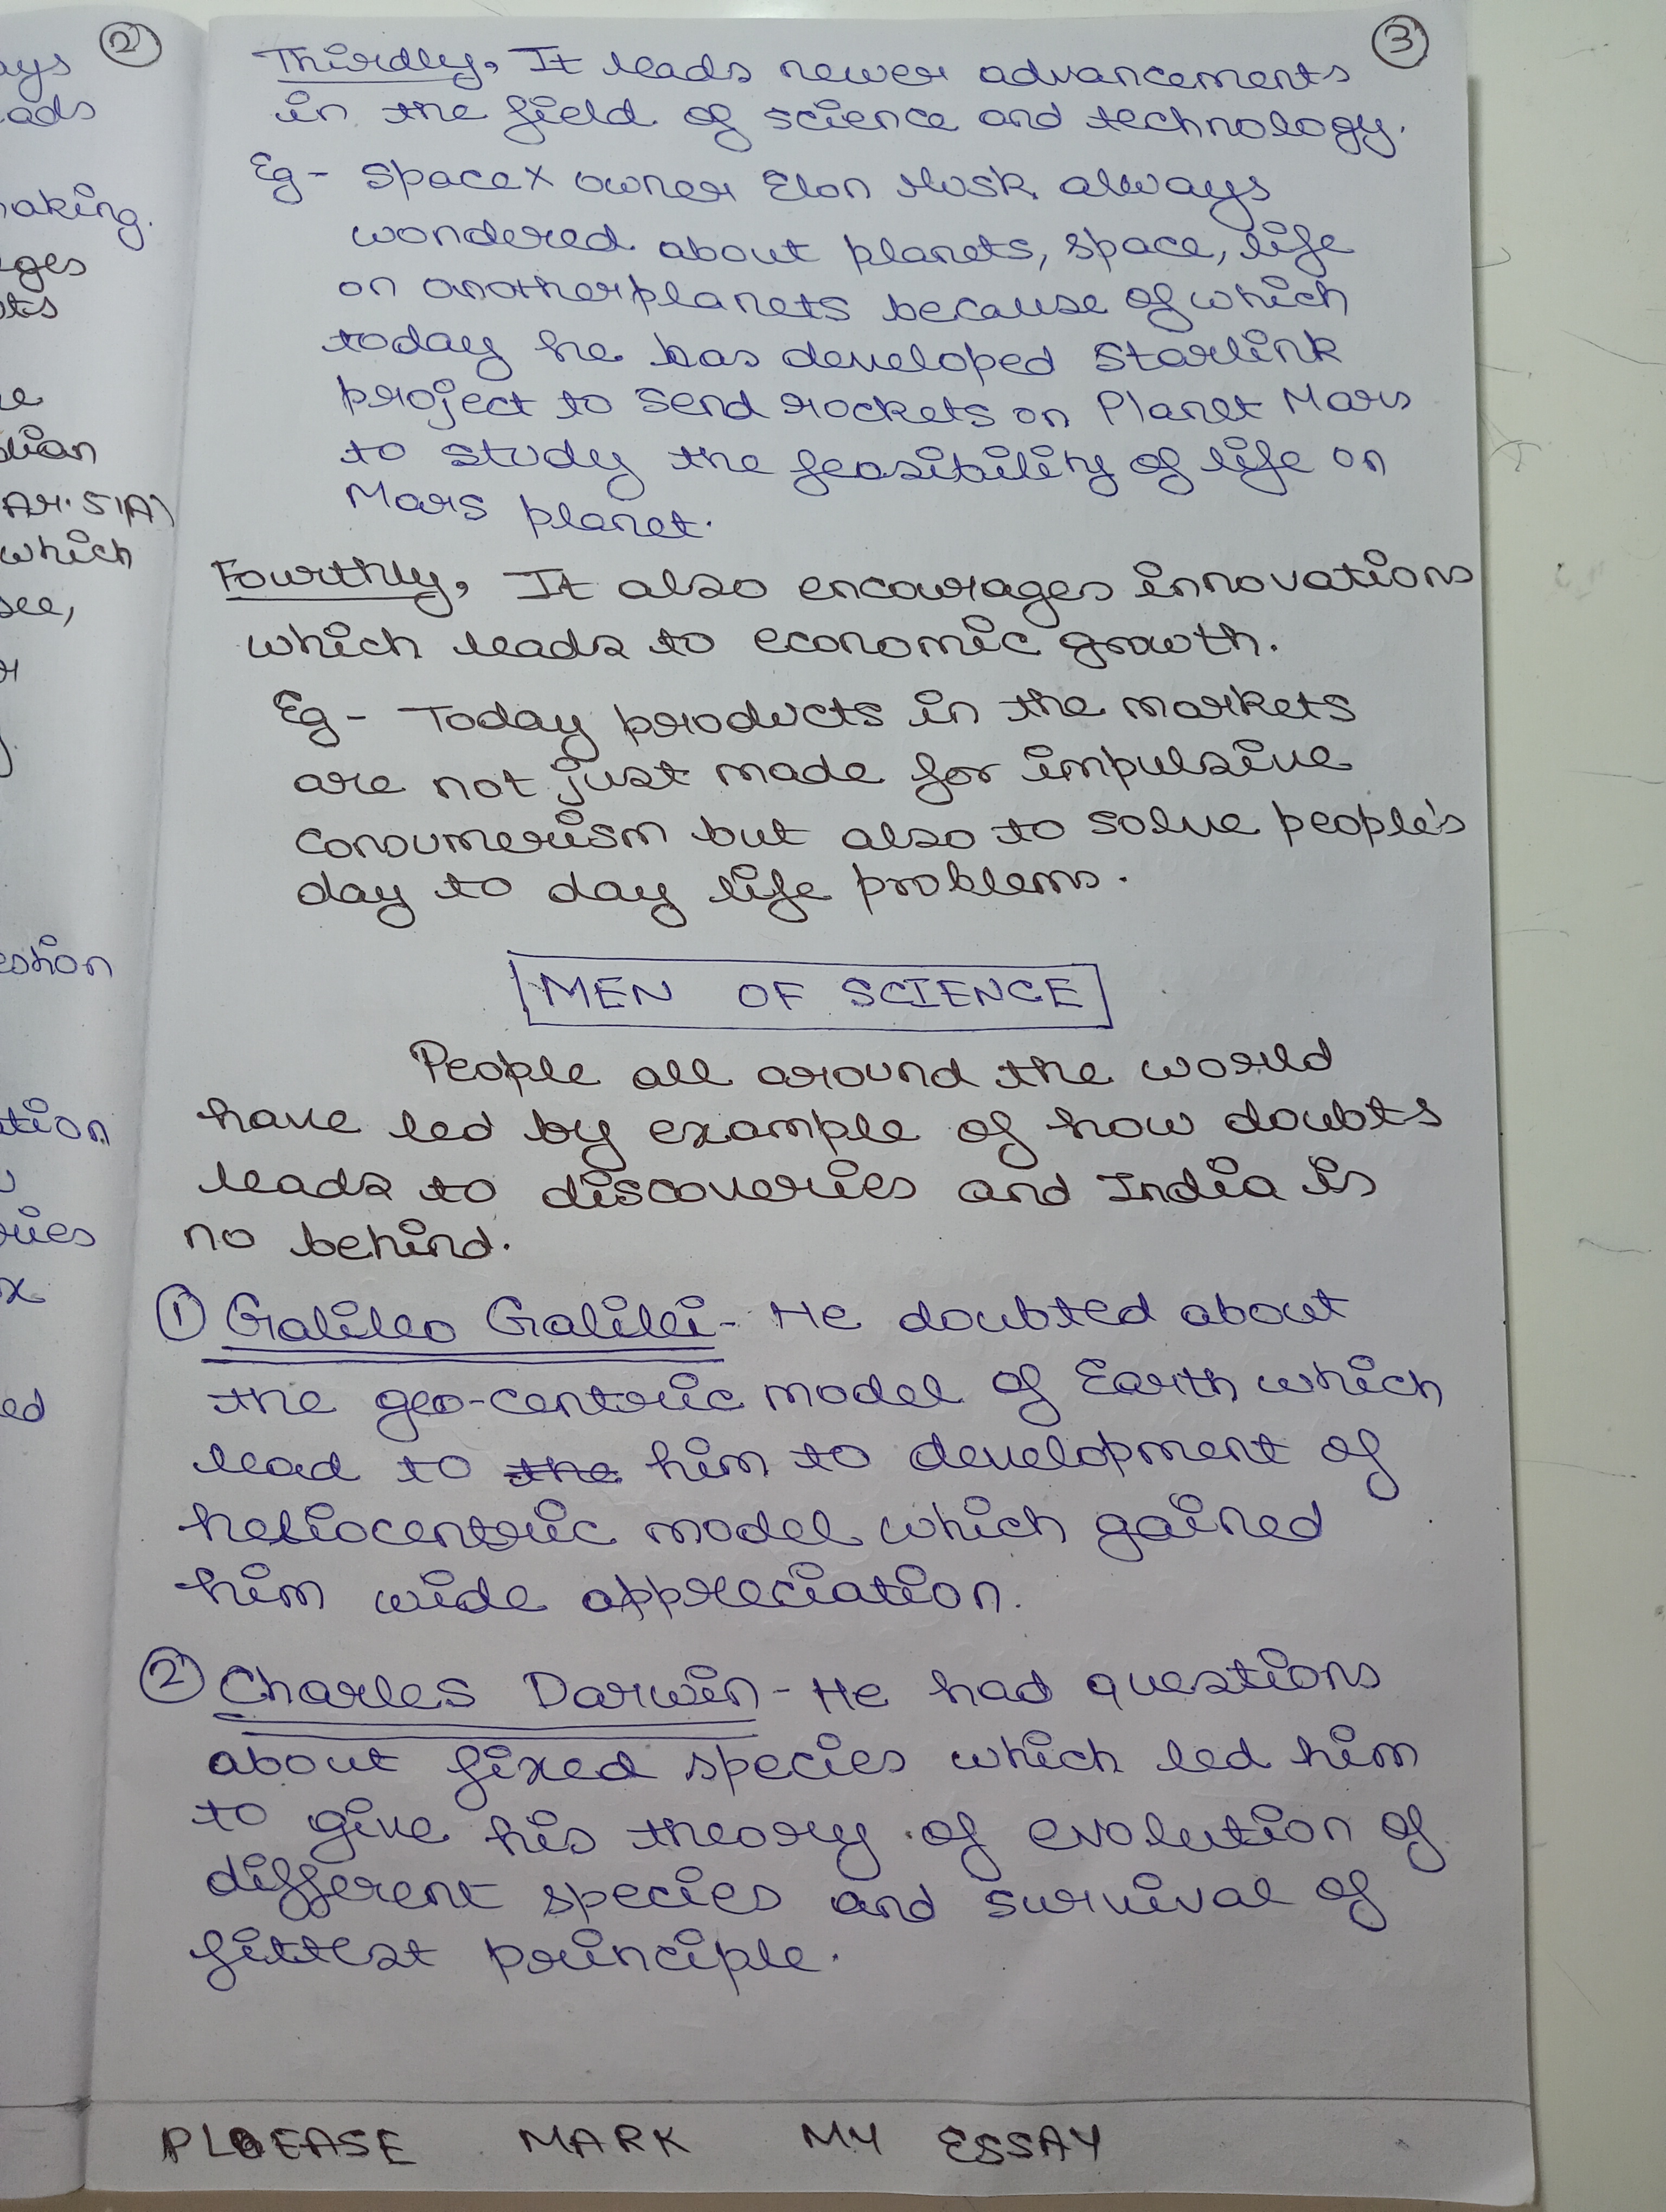 2
ays
ads
aking.
ges
ts
dian
Ar. 51(A)
which
see,
tion
ed
3
Thirdly, It leads newer advancements
in the field of science and technology.
Eg - SpaceX owner Elon Musk always
wondered about planets, space, life
on another planets because of which
today he has developed Starlink
project to send rockets on Planet Mars
to study the feasibility of life on
Mars planet.
Fourthly, It also encourages innovations
which leads to economic growth.
Eg - Today products in the markets
are not just made for impulsive
consumerism but also to solve people's
day to day life problems.
MEN OF SCIENCE
People all around the world
have led by example of how doubts
leads to discoveries and India is
no behind.
1 Galileo Galilei - He doubted about
the geo-centric model of Earth which
lead to the him to development of
heliocentric model which gained
him wide appreciation.
2 Charles Darwin - He had questions
about fixed species which led him
to give his theory of evolution of
different species and survival of
fittest principle.
PLEASE MARK MY ESSAY